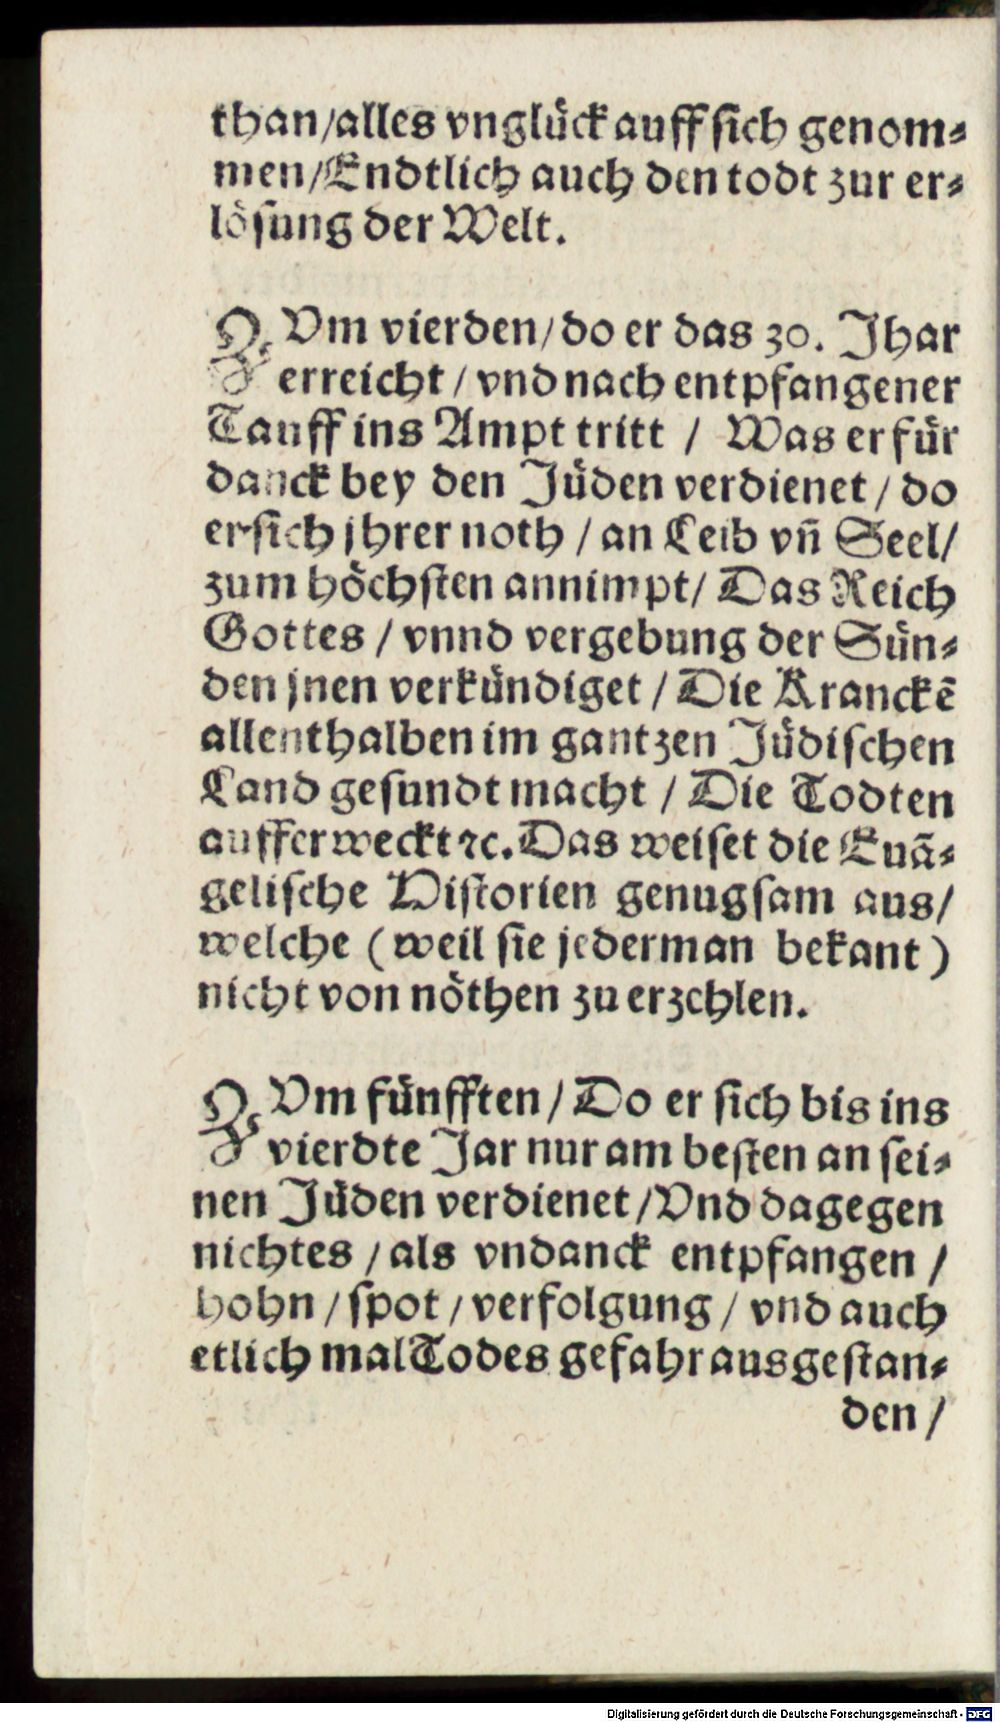 than/alles vnglück auff sich genom-
men/Endtlich auch den todt zur er-
lösung der Welt.
ZVm vierden/do er das 30. Jhar
erreicht / vnd nach entpfangener
Tauff ins Ampt tritt / Was er für
danck bey den Jüden verdienet / do
er sich jhrer noth / an Leib vñ Seel/
zum höchsten annimpt/ Das Reich
Gottes / vnnd vergebung der Sün-
den jnen verkündiget / Die Kranckē
allenthalben im gantzen Jüdischen
Land gesundt macht / Die Todten
aufferweckt ꝛc. Das weiset die Euā-
gelische Historien genugsam aus/
welche (weil sie jederman bekant)
nicht von nöthen zu erzehlen.
ZVm fünfften / Do er sich bis ins
vierdte Jar nur am besten an sei-
nen Jüden verdienet /Vnd dagegen
nichtes / als vndanck entpfangen /
hohn / spot / verfolgung / vnd auch
etlich mal Todes gefahr ausgestan-
den /
Digitalisierung gefördert durch die Deutsche Forschungsgemeinschaft - DFG